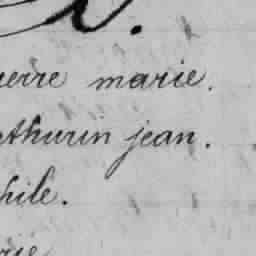 ierre marie.
athurin jean.
phile.